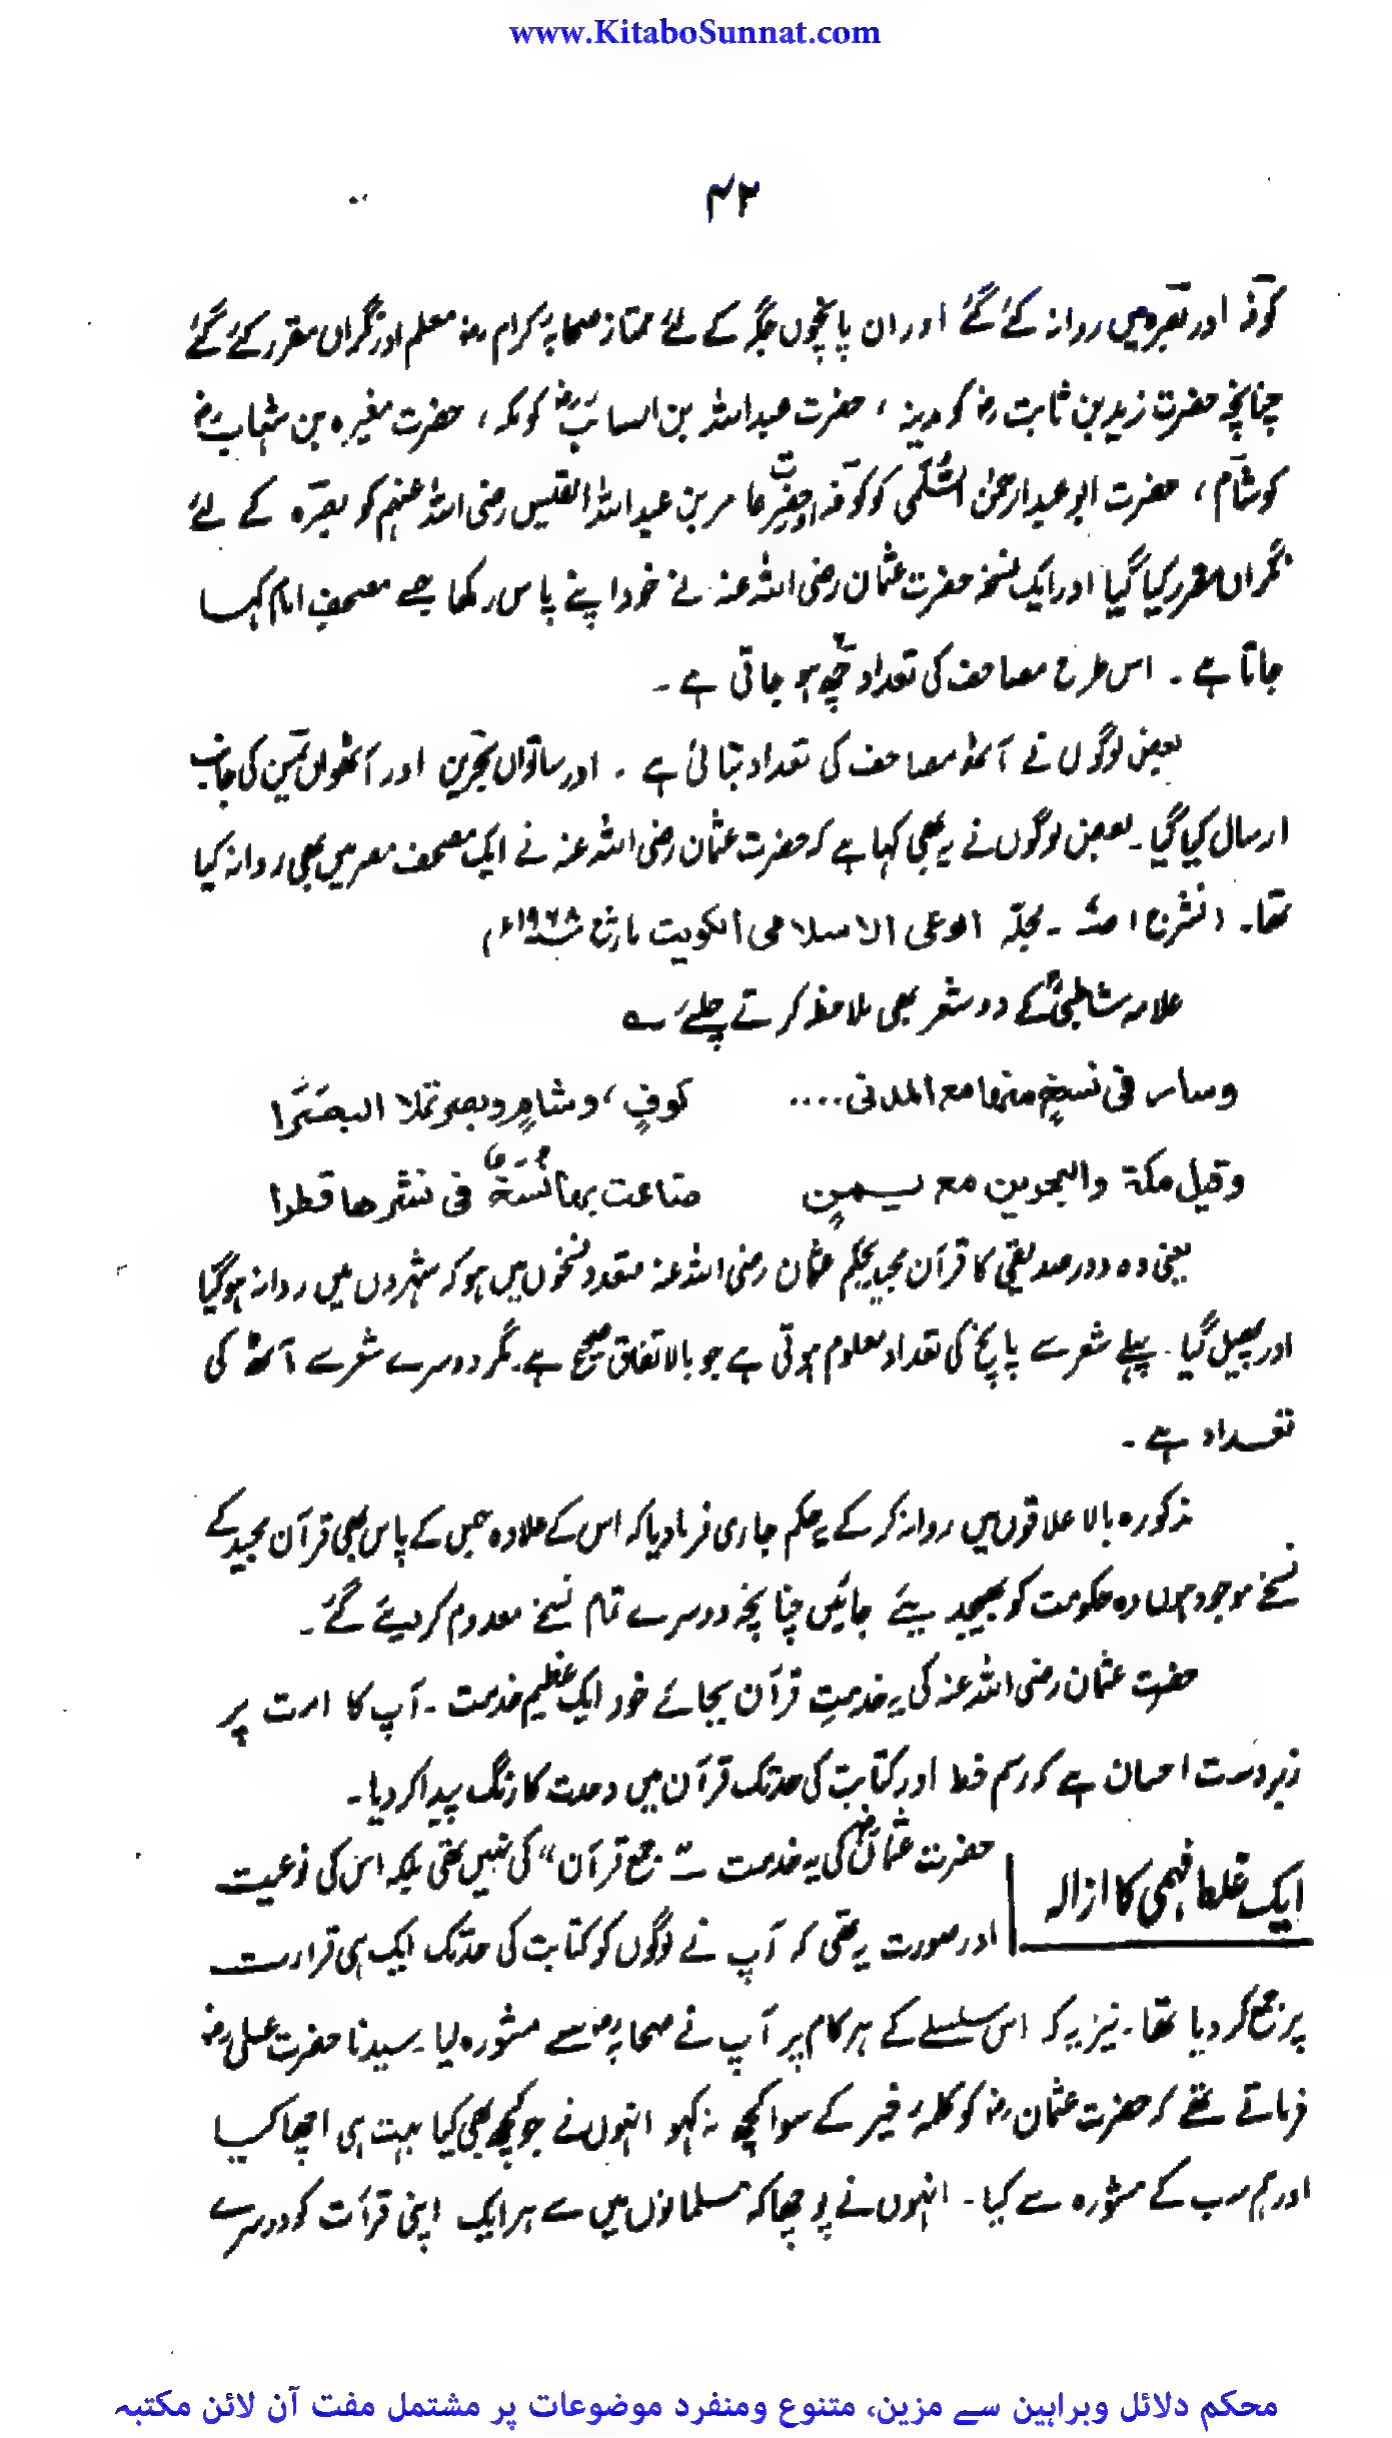 www.KitaboSunnat.com
۴۲
کوفہ اور بصرہ میں روانہ کئے گئے اور ان پانچوں جگہ کے لئے ممتاز صحابۂ کرام رضہ معلم اور نگراں مقرر کئے گئے
چنانچہ حضرت زید بن ثابت رضہ کو مدینہ ، حضرت عبداللہ بن السائب رضہ کو مکہ ، حضرت مغیرہ بن شہاب رضہ
کو شام ، حضرت ابو عبدالرحمٰن السُّلَمی کو کوفہ اور حضرت عامر بن عبداللہ القیس رضی اللہ عنہم کو بصرہ کے لئے
نگراں مقرر کیا گیا اور ایک نسخہ حضرت عثمان رضی اللہ عنہ نے خود اپنے پاس رکھا جسے مصحفِ امام کہا
جاتا ہے ۔ اس طرح مصاحف کی تعداد چھ ہو جاتی ہے ۔
بعض لوگوں نے آٹھ مصاحف کی تعداد بتائی ہے ۔ اور ساتواں بحرین اور آٹھواں یمن کی جانب
ارسال کیا گیا ۔ بعض لوگوں نے یہ بھی کہا ہے کہ حضرت عثمان رضی اللہ عنہ نے ایک مصحف مصر میں بھی روانہ کیا
تھا ۔ (نشر ج ۱ صـ ۔ مجلّہ الوعی الاسلامی الکویت مارچ ۱۹۶۸ءم
علامہ شاطبیؒ کے دو شعر بھی ملاحظہ کرتے چلئے ؎
وسار فی نسخٍ منها مع المدنی .... کوفٍ ، وشامٍ وبصر تملا البصَرَا
وقیل مکة والبحرین مع یمنٍ ضاعت بها نُسَخٌ فی نشرها قطرا
یعنی وہ دور صدیقی کا قرآن مجید بحکم عثمان رضی اللہ عنہ متعدد نسخوں میں ہو کر شہروں میں روانہ ہو گیا
اور پھیل گیا ۔ پہلے شعر سے پانچ کی تعداد معلوم ہوتی ہے جو بالاتفاق صحیح ہے ۔ مگر دوسرے شعر سے آٹھ کی
تعداد ہے ۔
مذکورہ بالا علاقوں میں روانہ کر کے یہ حکم جاری فرما دیا کہ اس کے علاوہ جس کے پاس بھی قرآن مجید کے
نسخے موجود ہوں وہ حکومت کو بھیجد یئے جائیں چنانچہ دوسرے تمام نسخے معدوم کر دیئے گئے ۔
حضرت عثمان رضی اللہ عنہ کی یہ خدمتِ قرآن بجائے خود ایک عظیم خدمت ۔ آپ کا امت پر
زبردست احسان ہے کہ رسم خط اور کتابت کی حد تک قرآن میں وحدت کا رنگ پیدا کر دیا ۔
ایک غلط فہمی کا ازالہ
حضرت عثمانؓ کی یہ خدمت ” جمع قرآن “ کی نہیں تھی بلکہ اس کی نوعیت
اور صورت یہ تھی کہ آپ نے لوگوں کو کتابت کی حد تک ایک ہی قرارت
پر جمع کر دیا تھا ۔ نیز یہ کہ اس سلسلے کے ہر کام پر آپ نے صحابہ رضہ سے مشورہ لیا ۔ سیدنا حضرت علی رضہ
فرماتے تھے کہ حضرت عثمان رضہ کو کلمۂ خیر کے سوا کچھ نہ کہو انہوں نے جو کچھ بھی کیا بہت ہی اچھا کیا
اور ہم سب کے مشورہ سے کیا ۔ انہوں نے پوچھا کہ مسلمانوں میں سے ہر ایک اپنی قرآت کو دوسرے
محکم دلائل وبراہین سے مزین، متنوع ومنفرد موضوعات پر مشتمل مفت آن لائن مکتبہ